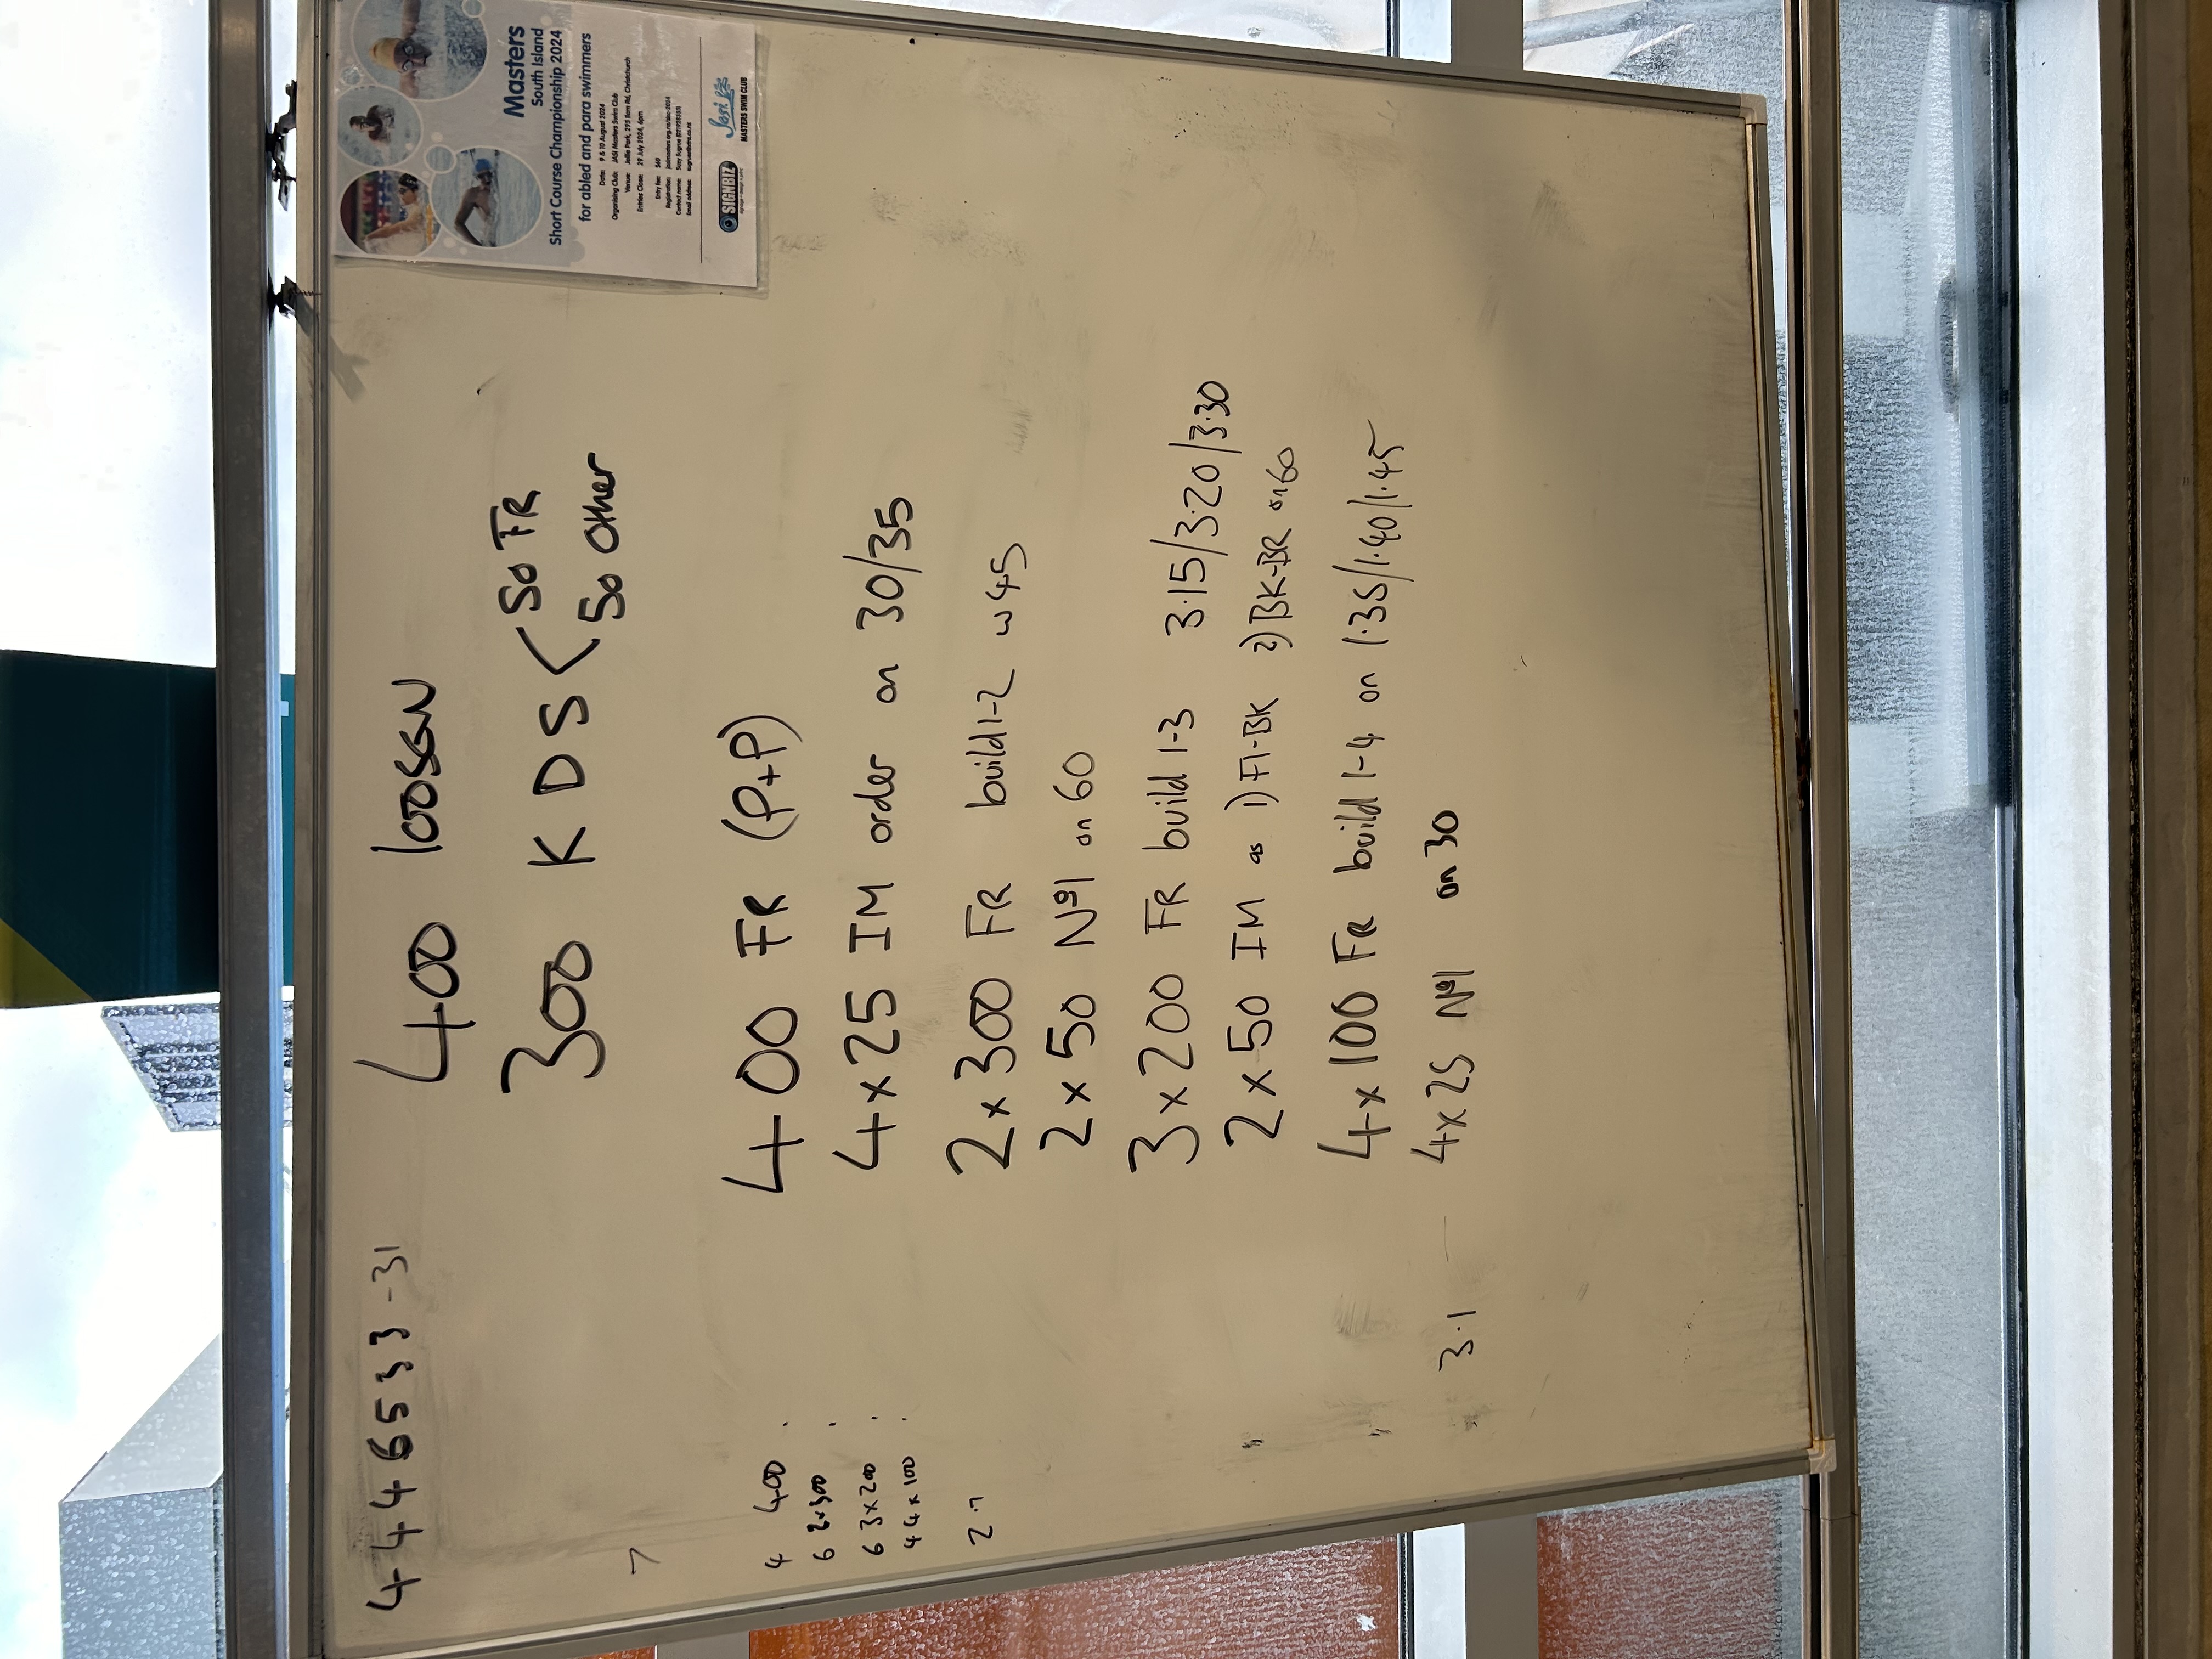 4446533-31
400 loosen
300 K D S < 50 FR
50 Other
7
400 FR (P+P)
4 400
6 2x300
6 3x200
4 4x100
2.7
4x25 IM order on 30/35
2x300 FR build 1-2 w 45
2x50 Nº1 on 60
3x200 FR build 1-3 3.15/3.20/3.30
2x50 IM as 1) Fl-BK 2) BK-BR on 60
4x100 FR build 1-4 on 1.35/1.40/1.45
3.1 — 4x25 Nº1 on 30
Masters
South Island
Short Course Championship 2024
for abled and para swimmers
Date: 9 & 10 August 2024
Organising Club: JASI Masters Swim Club
Venue: Jellie Park, 295 Ilam Rd, Christchurch
Entries Close: 29 July 2024, 6pm
Entry fee: $60
Registration:
Contact name: Suzy Sugrue
Email address:
SIGNBIZ
signage • design • print
Jasi
MASTERS SWIM CLUB